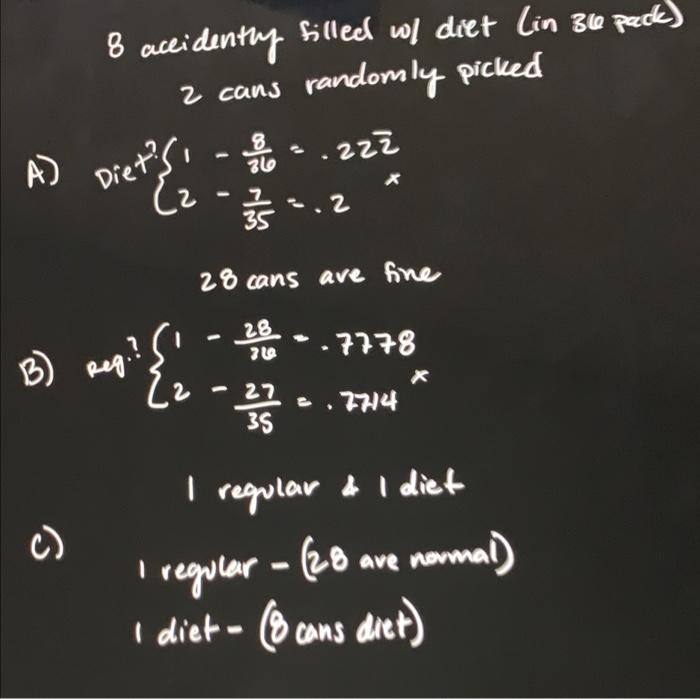 8 accidently filled w/ diet (in 36 pack)
2 cans randomly picked
A) Diet? { 1 - 8/36 = .222̅
2 - 7/35 = .2 x
28 cans are fine
B) Reg.? { 1 - 28/36 = .7778
2 - 27/35 = .7714 x
1 regular & 1 diet
C)
1 regular - (28 are normal)
1 diet - (8 cans diet)